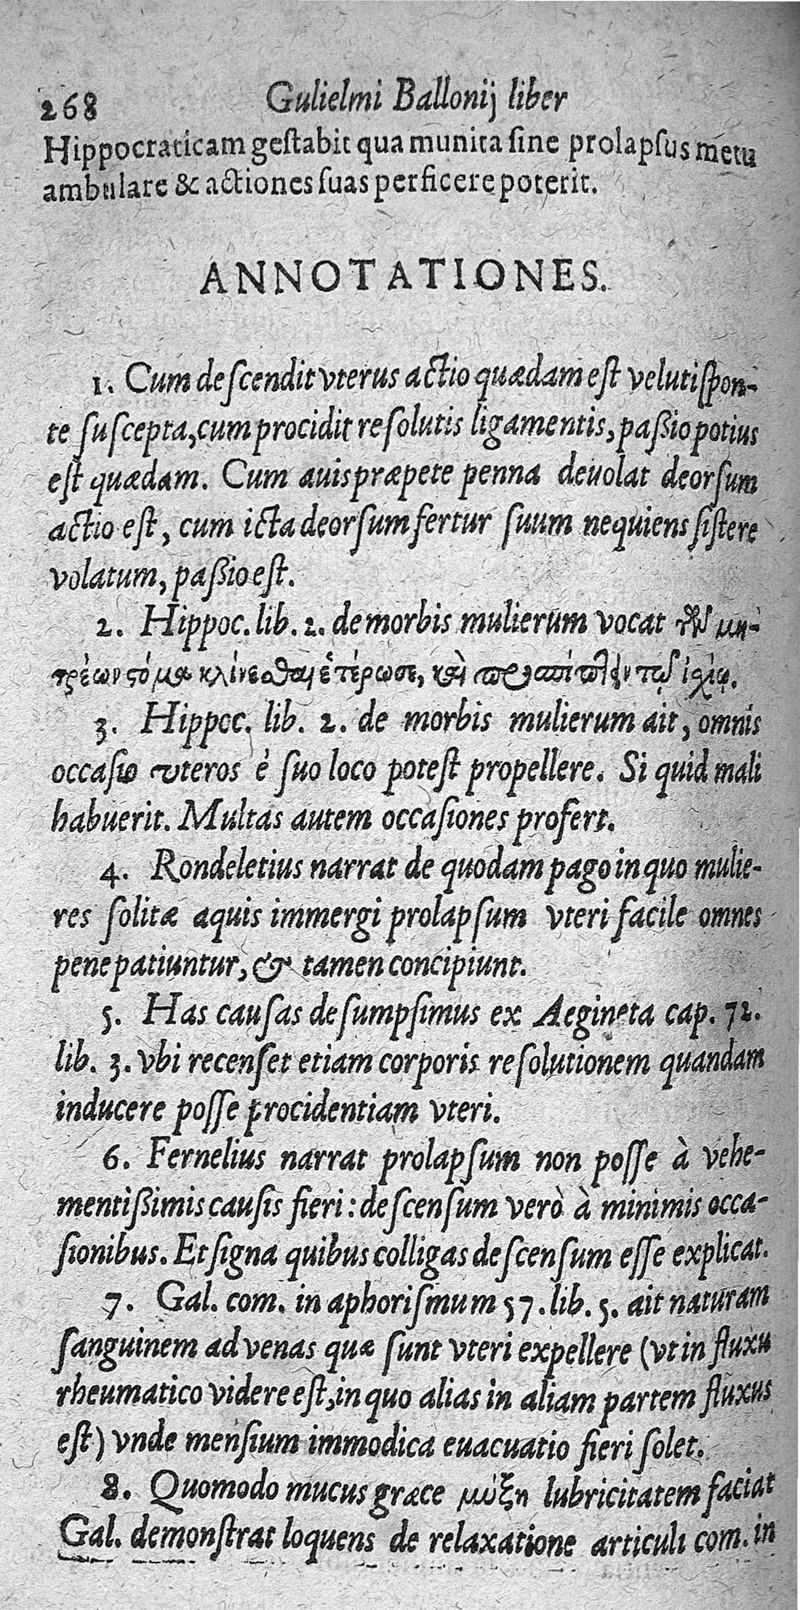 268 Gulielmi Ballonij liber
Hippocraticam gestabit qua munita sine prolapsus metu
ambulare & actiones suas perficere poterit.
ANNOTATIONES.
1. Cum descendit vterus actio quædam est veluti spon-
te suscepta, cum procidit resolutis ligamentis, passio potius
est quædam. Cum auis præpete penna deuolat deorsum
actio est, cum icta deorsum fertur suum nequiens sistere
volatum, passio est.
2. Hippoc. lib. 2. de morbis mulierum vocat τῶν μη-
τρέων στόμα κλίνεσθαι ἑτέρωσε, καὶ τῷ ἰσχίῳ.
3. Hippoc. lib. 2. de morbis mulierum ait, omnis
occasio vteros è suo loco potest propellere. Si quid mali
habuerit. Multas autem occasiones profert.
4. Rondeletius narrat de quodam pago in quo mulie-
res solitæ aquis immergi prolapsum vteri facile omnes
pene patiuntur, & tamen concipiunt.
5. Has causas desumpsimus ex Aegineta cap. 72.
lib. 3. vbi recenset etiam corporis resolutionem quandam
inducere posse procidentiam vteri.
6. Fernelius narrat prolapsum non posse à vehe-
mentissimis causis fieri: descensum verò à minimis occa-
sionibus. Et signa quibus colligas descensum esse explicat.
7. Gal. com. in aphorismum 57. lib. 5. ait naturam
sanguinem ad venas quæ sunt vteri expellere (vt in fluxu
rheumatico videre est, in quo alias in aliam partem fluxus
est) vnde mensium immodica euacuatio fieri solet.
8. Quomodo mucus græce μύξη lubricitatem faciat
Gal. demonstrat loquens de relaxatione articuli com. in